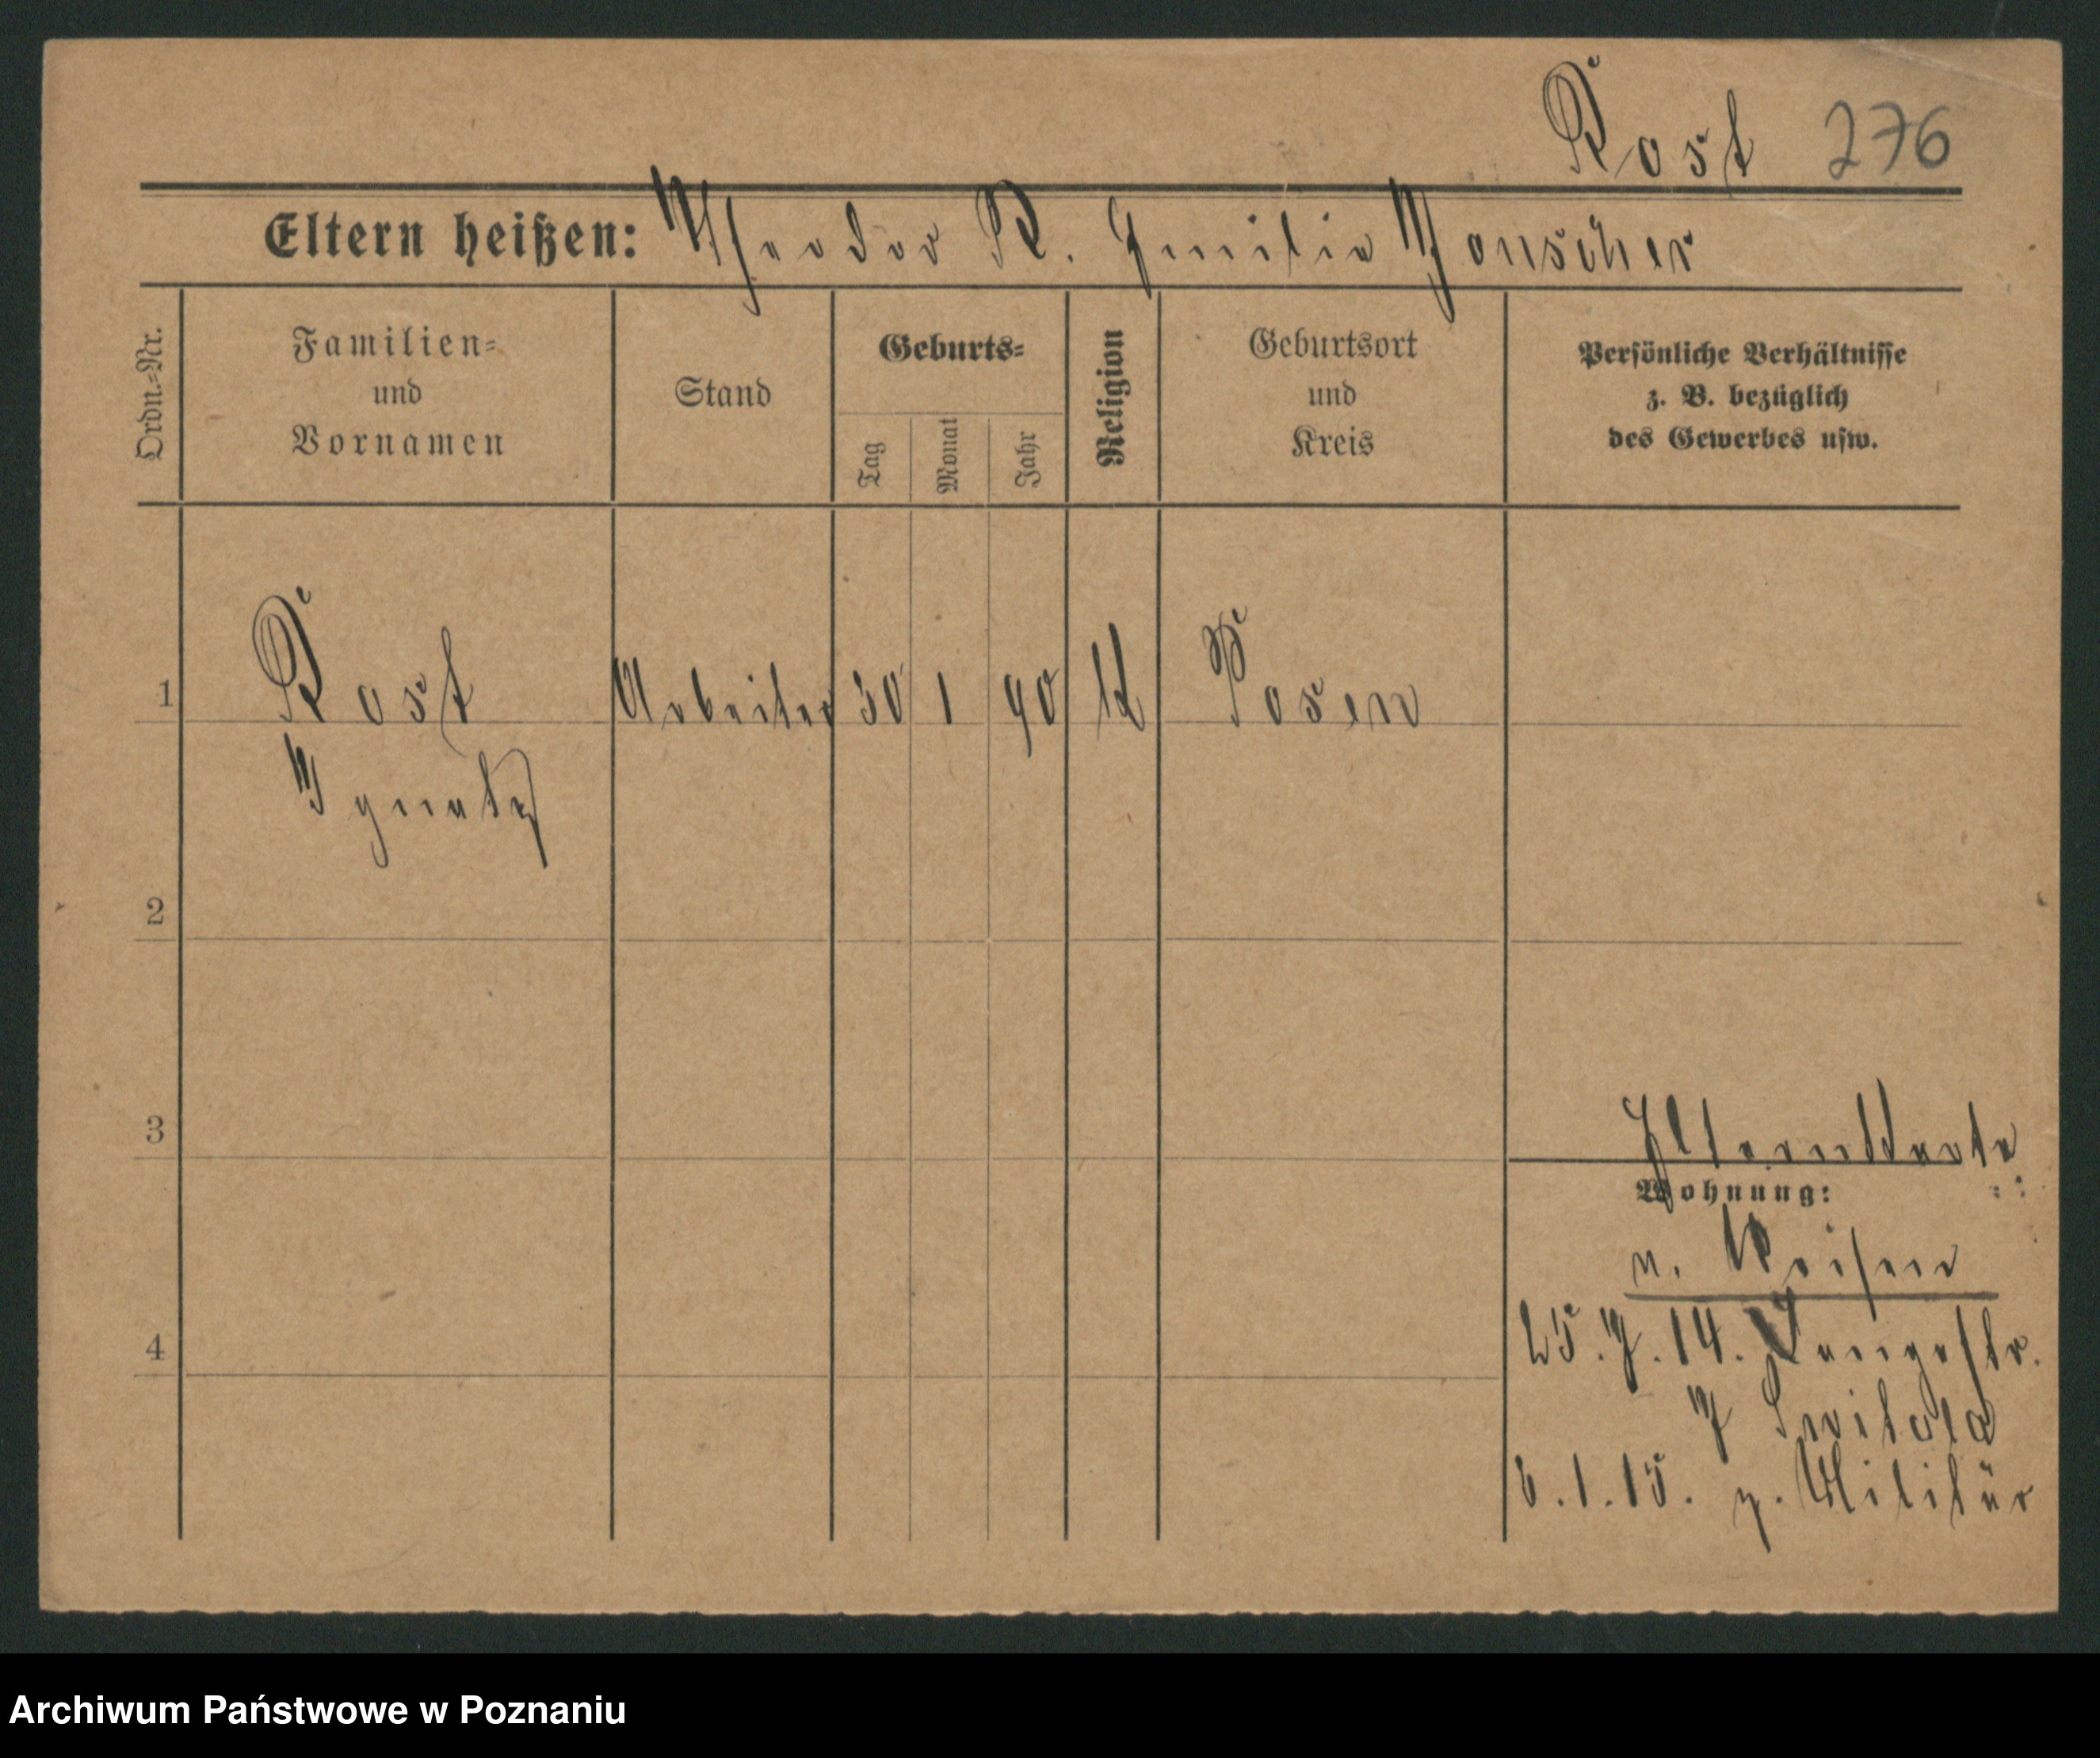 Rost 276
Eltern heißen: Theodor R. Emilie Jonscher
Ordn.-Nr.
Familien-
und
Vornamen
Stand
Geburts-
Tag
Monat
Jahr
Religion
Geburtsort
und
Kreis
Persönliche Verhältnisse
z. B. bezüglich
des Gewerbes usw.
1 Rost Arbeiter 30 1 90 Posen
Ignatz
2
3
Elternkarte
Wohnung:
n. Reisen
4
25. 7. 14. Langestr.
7
6. 1. 15. z. Militär
Archiwum Państwowe w Poznaniu